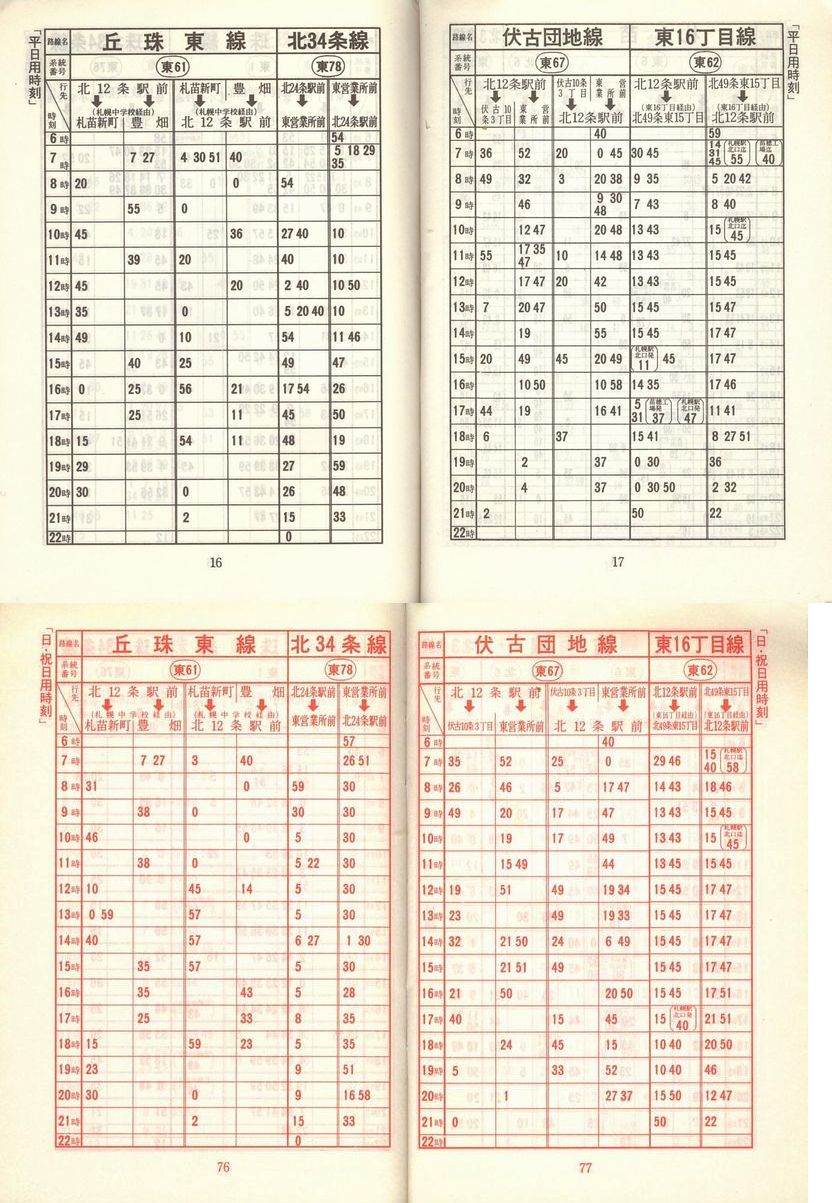 「平日用時刻」
路線名 丘珠東線 北34条線
系統番号 東61 東78
行先 時刻 北12条駅前 (札幌中学校経由) 札苗新町 豊畑 札苗新町 豊畑 (札幌中学校経由) 北12条駅前 北24条駅前 東営業所前 東営業所前 北24条駅前
6時 54
7時 7 27 4 30 51 40 5 18 29 35
8時 20 0 54
9時 55 0
10時 45 36 27 40 10
11時 39 20 40 10
12時 45 20 2 40 10 50
13時 35 0 5 20 40 10
14時 49 10 54 11 46
15時 40 25 49 47
16時 0 25 56 21 17 54 26
17時 25 11 45 50
18時 15 54 11 48 19
19時 29 27 59
20時 30 0 26 48
21時 2 15 33
22時 0
16
「平日用時刻」
路線名 伏古団地線 東16丁目線
系統番号 東67 東62
行先 時刻 北12条駅前 伏古10条3丁目 東営業所前 伏古10条3丁目 東営業所前 北12条駅前 北12条駅前 (東16丁目経由) 北49条東15丁目 北49条東15丁目 (東16丁目経由) 北12条駅前
6時 40 59
7時 36 52 20 0 45 30 45 14 31 45 札幌駅北口迄 55 苗穂工場迄 40
8時 49 32 3 20 38 9 35 5 20 42
9時 46 9 30 48 7 43 8 40
10時 12 47 20 48 13 43 15 札幌駅北口迄 45
11時 55 17 35 47 10 14 48 13 43 15 45
12時 17 47 20 42 13 43 15 45
13時 7 20 47 50 15 45 15 47
14時 19 55 15 45 17 47
15時 20 49 45 20 49 札幌駅北口発 11 45 17 47
16時 10 50 10 58 14 35 17 46
17時 44 19 16 41 5 31 苗穂工場発 37 札幌駅北口発 47 11 41
18時 6 37 15 41 8 27 51
19時 2 37 0 30 36
20時 4 37 0 30 50 2 32
21時 2 50 22
22時
17
「日・祝日用時刻」
路線名 丘珠東線 北34条線
系統番号 東61 東78
行先 時刻 北12条駅前 (札幌中学校経由) 札苗新町 豊畑 札苗新町 豊畑 (札幌中学校経由) 北12条駅前 北24条駅前 東営業所前 東営業所前 北24条駅前
6時 57
7時 7 27 3 40 26 51
8時 31 0 59 30
9時 38 0 30 30
10時 46 0 5 30
11時 38 0 5 22 30
12時 10 45 14 5 30
13時 0 59 57 5 30
14時 40 57 6 27 1 30
15時 35 57 5 30
16時 35 43 5 28
17時 25 33 8 35
18時 15 59 23 5 35
19時 23 9 51
20時 30 0 9 16 58
21時 2 15 33
22時 0
76
「日・祝日用時刻」
路線名 伏古団地線 東16丁目線
系統番号 東67 東62
行先 時刻 北12条駅前 伏古10条3丁目 東営業所前 伏古10条3丁目 東営業所前 北12条駅前 北12条駅前 (東16丁目経由) 北49条東15丁目 北49条東15丁目 (東16丁目経由) 北12条駅前
6時 40
7時 35 52 25 0 29 46 15 40 札幌駅北口迄 58
8時 26 46 5 17 47 14 43 18 46
9時 49 20 17 47 13 43 15 45
10時 19 17 49 13 43 15 札幌駅北口迄 45
11時 15 49 44 13 45 15 45
12時 19 51 49 19 34 15 45 17 47
13時 23 49 19 33 15 45 17 47
14時 32 21 50 24 6 49 15 45 17 47
15時 21 51 49 15 45 17 47
16時 21 50 20 50 15 45 17 51
17時 40 15 45 15 札幌駅北口発 40 21 51
18時 24 45 15 10 40 20 50
19時 5 33 52 10 40 46
20時 1 27 37 15 50 12 47
21時 0 50 22
22時
77